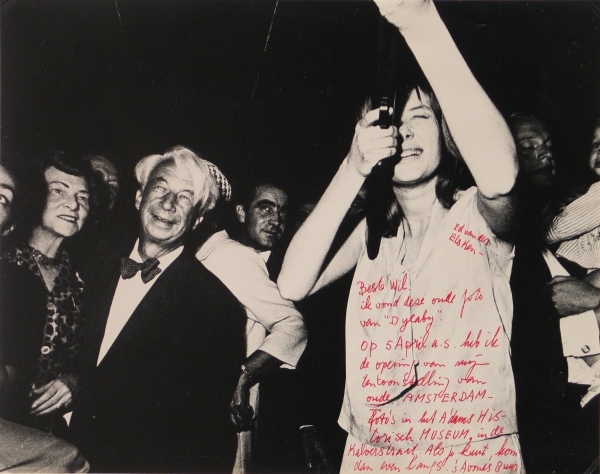 Ed van der
Elsken-
Beste Wil,
ik vond deze oude foto
van "Dylaby"
op 5 April a.s. heb ik
de opening van mijn
tentoonstelling van
oude AMSTERDAM-
foto's in het A'dams HIS-
torisch MUSEUM, in de
Kalverstraat. Als je kunt, kom
dan even langs, 's avonds 8 uur